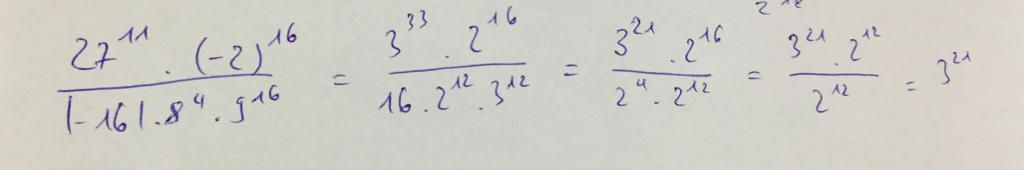 2^{12}
\frac{27^{11} \cdot (-2)^{16}}{|-16| \cdot 8^4 \cdot 9^{16}} = \frac{3^{33} \cdot 2^{16}}{16 \cdot 2^{12} \cdot 3^{12}} = \frac{3^{21} \cdot 2^{16}}{2^4 \cdot 2^{12}} = \frac{3^{21} \cdot 2^{12}}{2^{12}} = 3^{21}